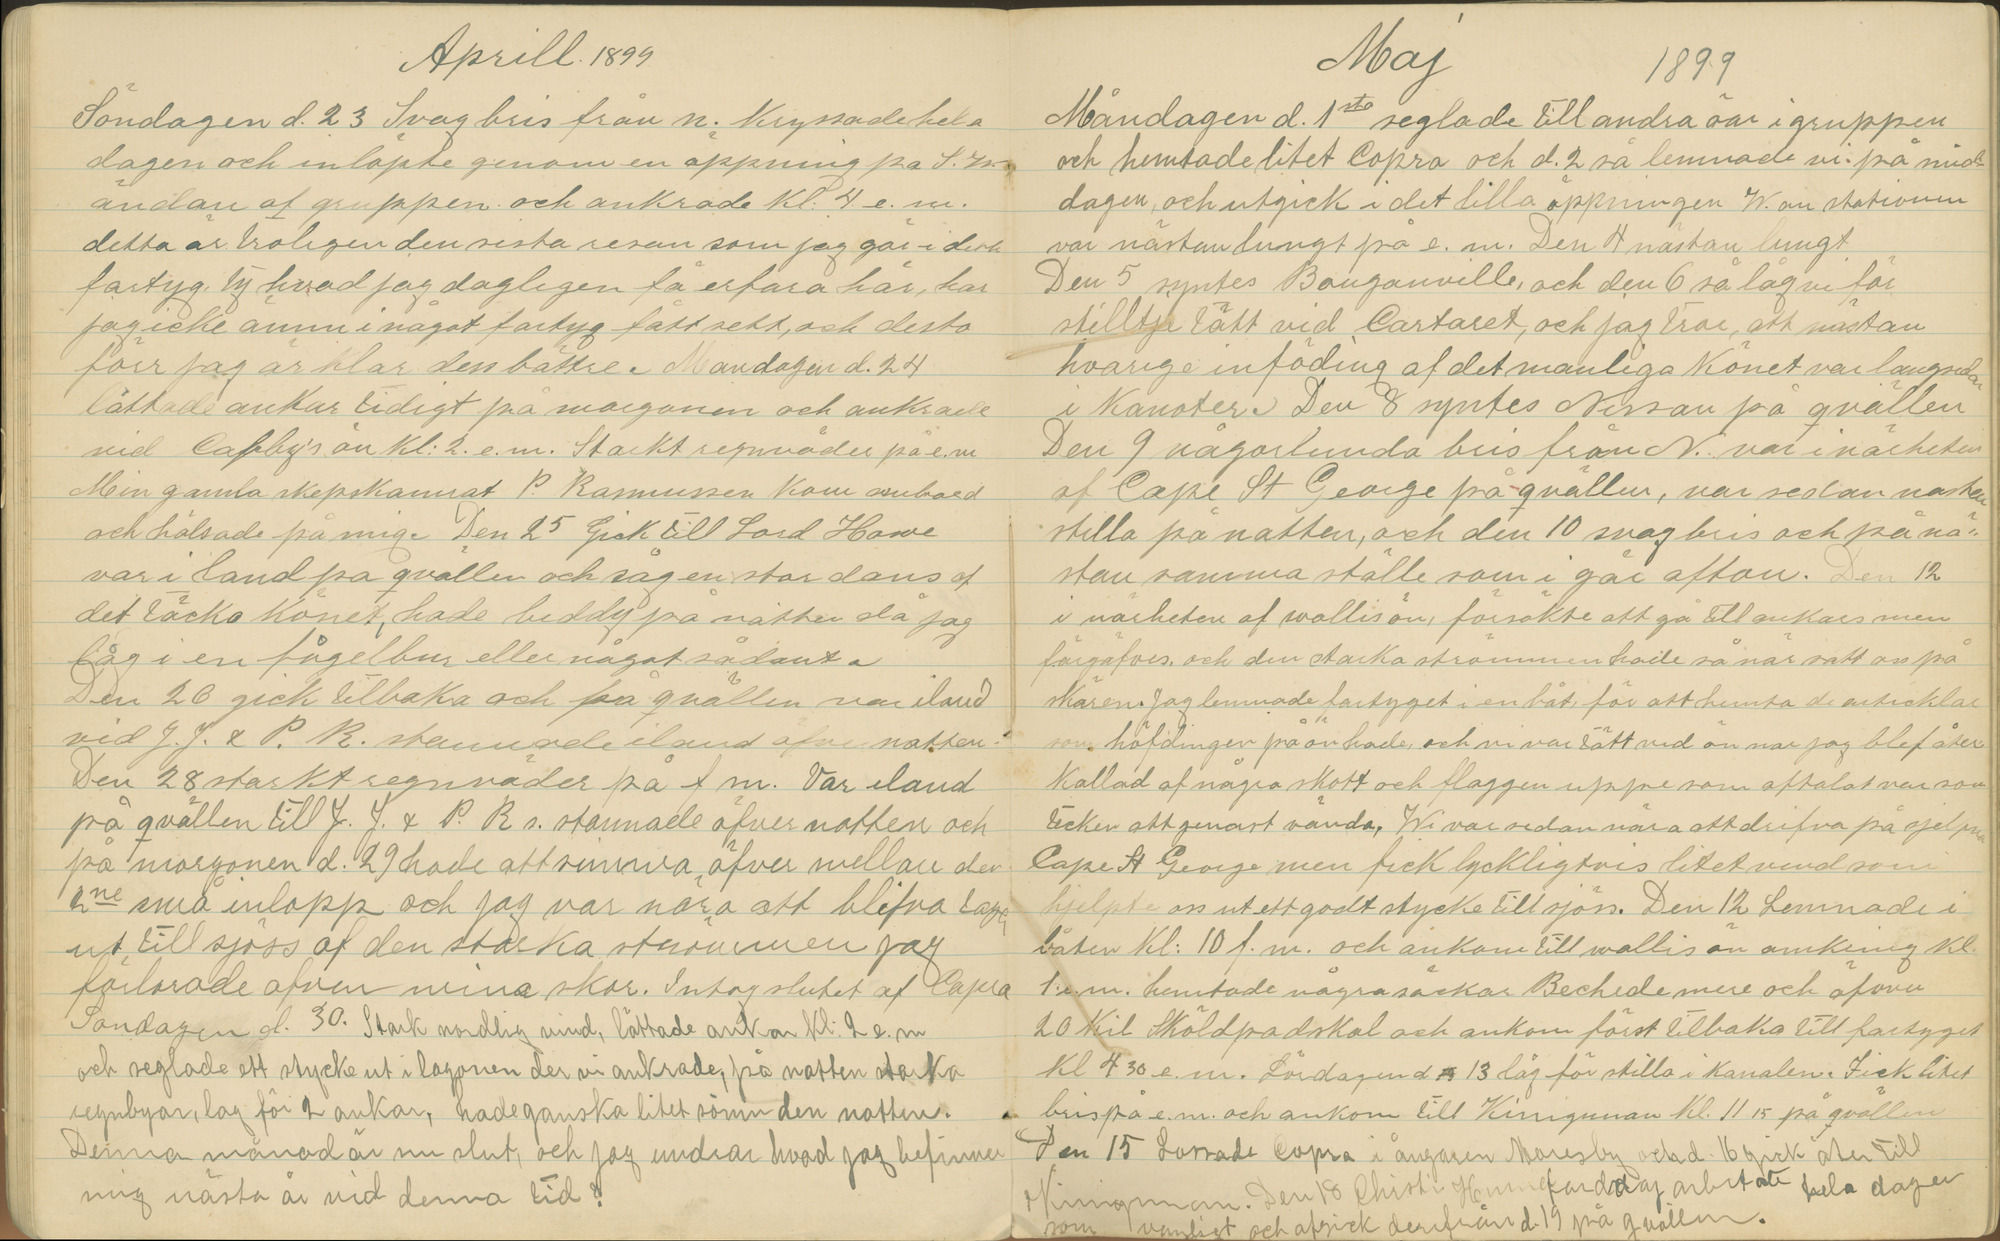 Aprill. 1899
Söndagen d. 23 Svag bris från N. Kryssade hela
dagen och inlöpte genom en öppning på S. W.
ändan af gruppen och ankrade Kl: 4 e. m.
detta är troligen den sista resan som jag går i detta
fartyg, ty hvad jag dagligen få erfara här, har
jag icke ännu i något fartyg fått sett, och desto
förr jag är klar dess bättre. Mandagen d. 24
lättade ankar tidigt på morgonen och ankrade
vid Cabby's ön Kl: 2. e. m. Starkt regnväder på e. m
Min gamla skepskamrat P. Rasmussen Kom ombord
och hälsade på mig. Den 25 Gick till Lord Howe
var i land på qvällen och såg en stor dans af
det täcka Könet, hade beddy på natten då jag
låg i en fågelbur eller något sådant.
Den 26 gick tilbaka och på qvällen var iland
vid J. J. & P. R. stannade iland öfver natten.
Den 28 starkt regnväder på f m. Var iland
på qvällen till J. J. & P. R s. stannade öfver natten och
på morgonen d. 29 hade att simma öfver mellan der
2ne små inlopp och jag var nära att blifva
ut till sjöss af den starka strömmen jag
förlorade äfven mina skor. Intog slutet af Copra
Söndagen d. 30. Stark nordlig vind, lättade ankar Kl: 2 e. m
och seglade ett stycke ut i lagonen der vi ankrade, på natten starka
regnbyar, lag för 2 ankar, hade ganska litet sömn den natten.
Denna månad är nu slut, och jag undrar hvad jag befinner
mig nästa år vid denna tid?
Maj 1899
Måndagen d. 1sta seglade till andra öar i gruppen
och hemtade litet Copra och d. 2 så lemnade vi på mid-
dagen, och utgick i det lilla öppningen W. om stationen
var nästan lungt på e. m. Den 4 nästan lungt
Den 5 syntes Bouganville, och den 6 så låg vi för
stilltje tätt vid Cartaret, och jag tror, att nästan
hvarige inföding af det manliga Könet var langsedan
i Kanoter. Den 8 syntes Nissan på qvällen
Den 9 någorlunda bris från N. var i närheten
af Cape St George på qvällen, var sedan nastan
stilla på natten, och den 10 svag bris och på nä-
stan samma ställe som i går afton. Den 12
i närheten af wallis ön, försökte att gå till ankars men
förgäfves, och den starka strömmen hade så när satt oss på
skären. Jag lemnade fartyget i en båt, för att hemta de articklar
som höfdingen på ön hade, och vi var tätt vid ön när jag blef åter
Kallad af några skott och flaggen uppe som aftalat var som
tecken att genast vända, Wi var sedan nära att drifva på sjelfva
Cape St George men fick lyckligtvis litet vind som
hjelpte oss ut ett godt stycke till sjöss. Den 12 Lemnade i
båten Kl: 10 f. m. och ankom till wallis ön omkring Kl.
1 e. m. hemtade några säckar Bechedemere och äfven
20 Kil Sköldpadskal och ankom först tilbaka till fartyget
Kl 4 30 e. m. Lördagen d 13 låg för stilla i Kanalen. Fick litet
bris på e. m. och ankom till Kinigunan Kl. 11 15 på qvällen
Den 15 Lossade Copra i ångaren Moresby och d. 16 gick åter till
Kinigunan. Den 18 Christi Himmelfardsdag arbetate hela dagen
som vanligt och afgick derifrån d. 19 på qvällen.